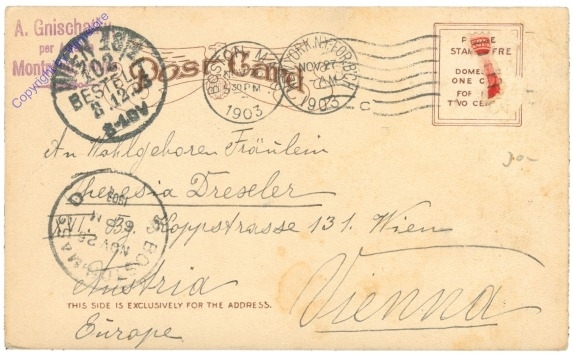 A. Gnischaf
per
Mont
WIEN 18/1
102
BESTELLT
8.12.03
8-49V
Post Card
BOSTON, MASS
5-30PM
1903
NEW YORK, N.Y. FOREIGN
NOV 27
AM
1903
PLACE
STAMP HERE
DOMESTIC
ONE CENT
FOREIGN
TWO CENTS
An Wohlgeboren Fräulein
Theresia Dreseler
XVI. Koppstrasse 131. Wien
BOSTON MASS
NOV 26
1903
Austria
Vienna
THIS SIDE IS EXCLUSIVELY FOR THE ADDRESS.
Europe